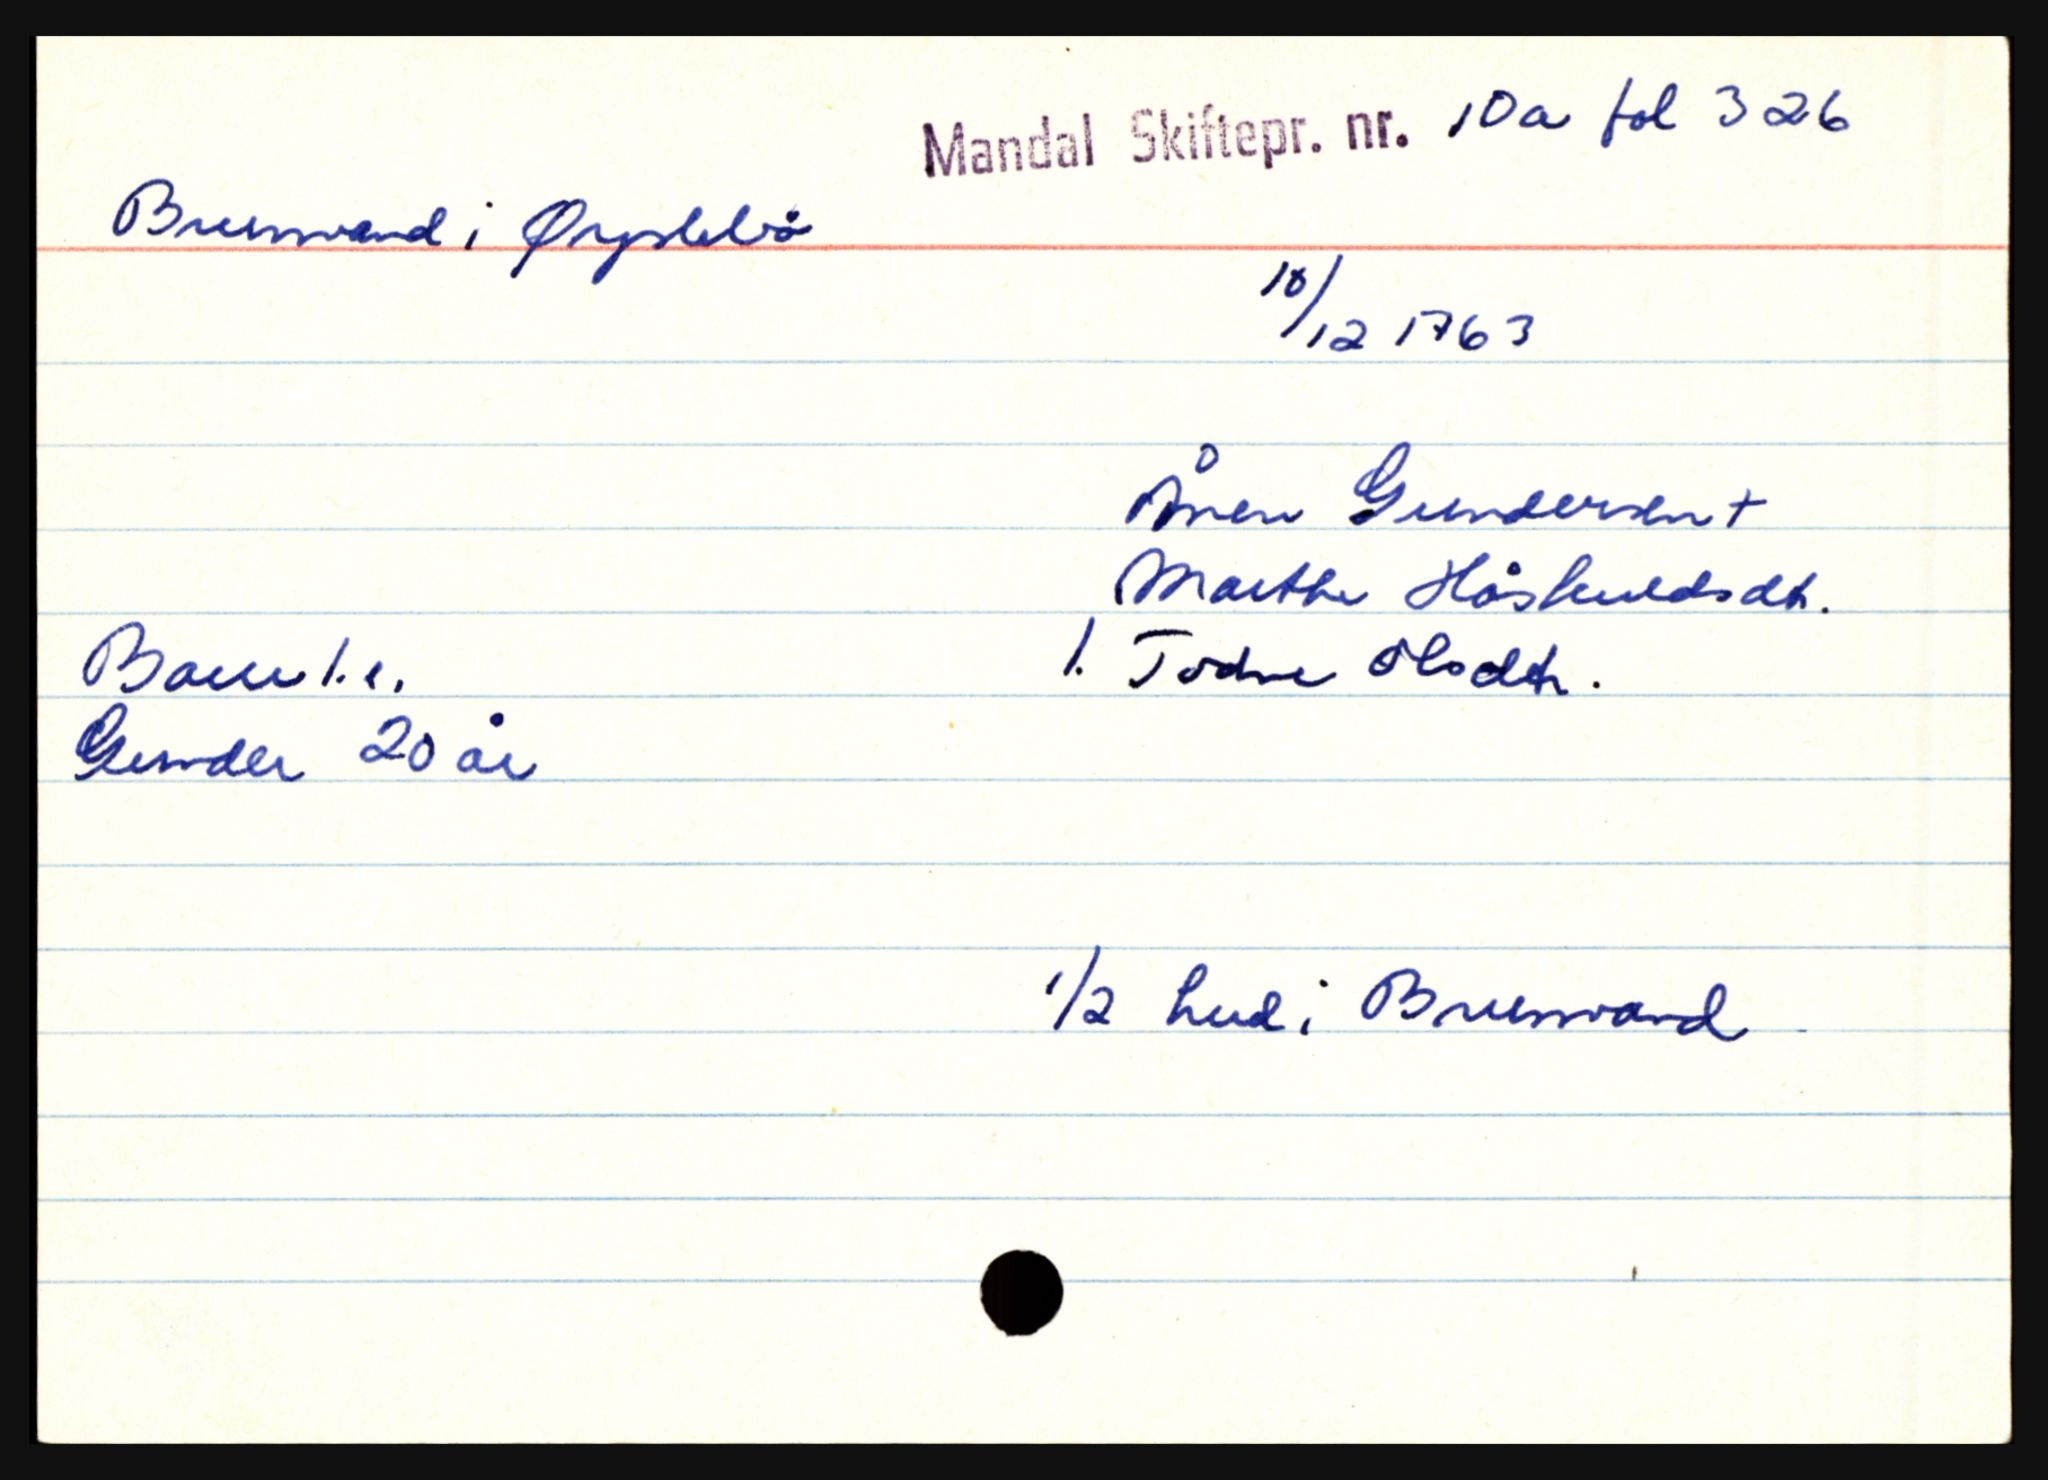 Mandal Skiftepr. nr. 10a fol 326
Brunvand i Øyslebø
10/12 1763
Ånen Gundersen +
Marthe Håskuldsdtr.
Barn 1. e. 1. Todne Olsdtr.
Gunder 20 år
1/2 hud i Brunvand